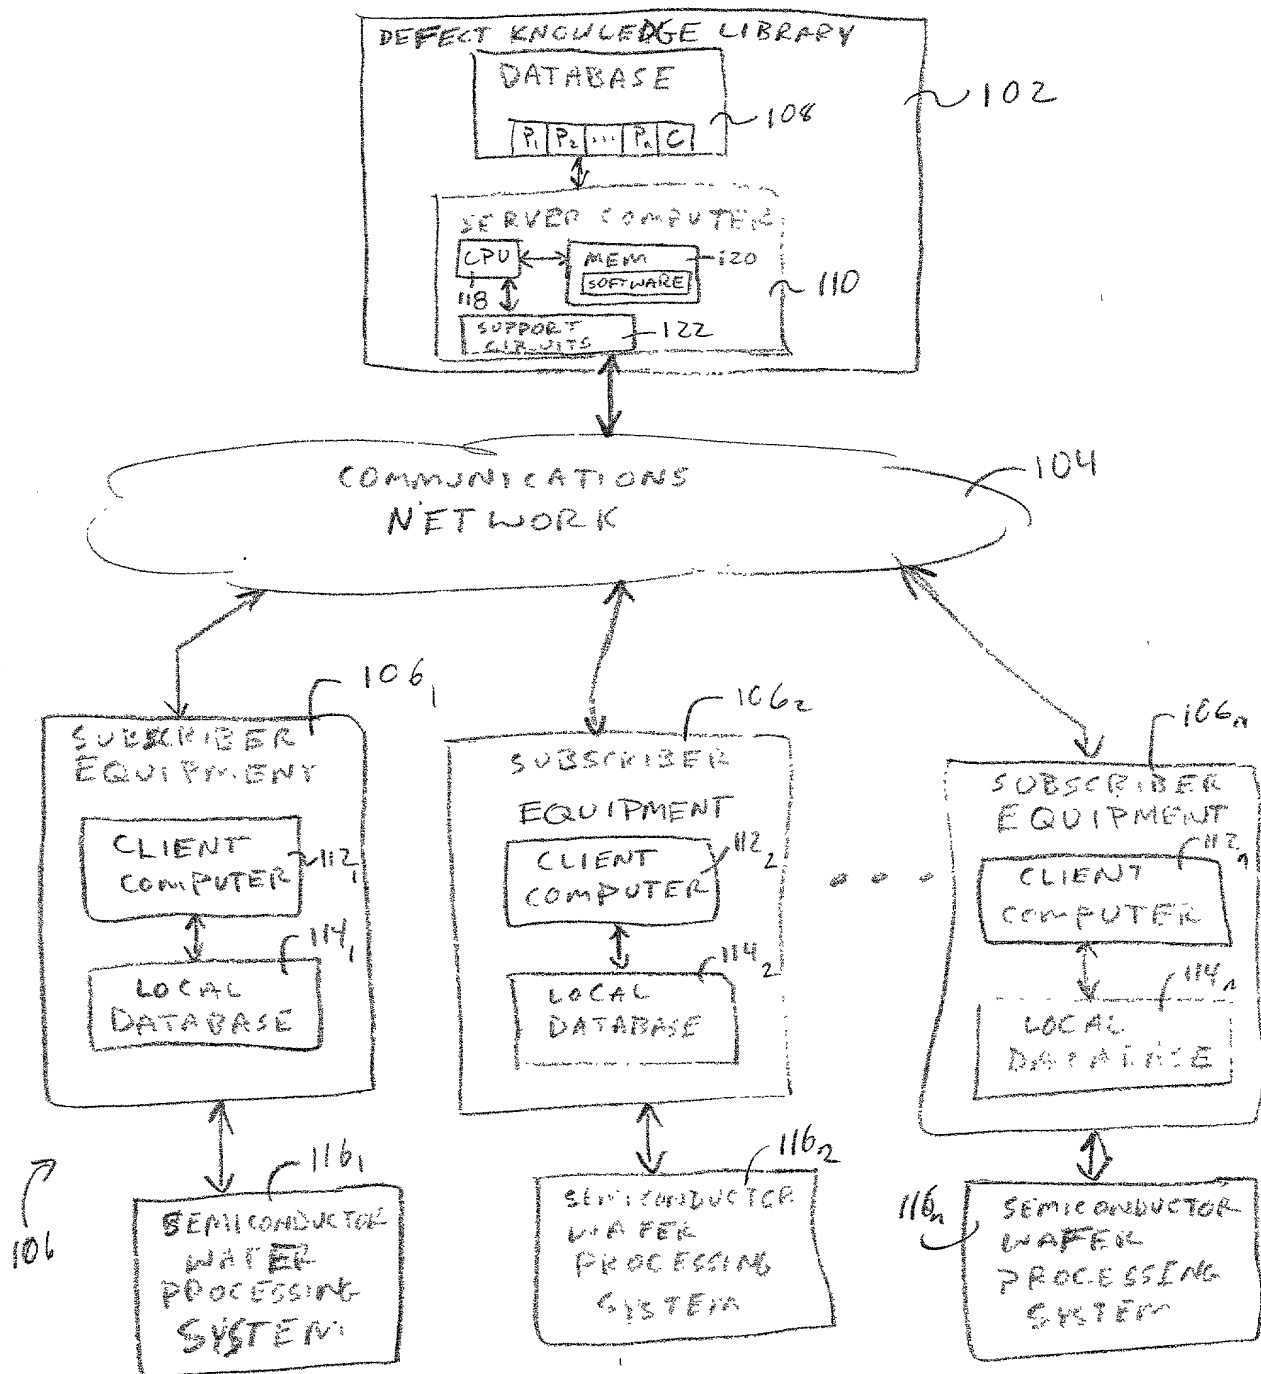 DEFECT KNOWLEDGE LIBRARY
DATABASE
102
108
P₁ P₂ ... Pₙ C
SERVER COMPUTER
CPU
MEM
120
SOFTWARE
118
110
SUPPORT
CIRCUITS
122
COMMUNICATIONS
NETWORK
104
106₁
SUBSCRIBER
EQUIPMENT
CLIENT
COMPUTER
112₁
114₁
LOCAL
DATABASE
106₂
SUBSCRIBER
EQUIPMENT
CLIENT
COMPUTER
112₂
114₂
LOCAL
DATABASE
• • •
106ₙ
SUBSCRIBER
EQUIPMENT
112ₙ
CLIENT
COMPUTER
114ₙ
LOCAL
DATABASE
106
116₁
SEMICONDUCTOR
WAFER
PROCESSING
SYSTEM
116₂
SEMICONDUCTOR
WAFER
PROCESSING
SYSTEM
116ₙ
SEMICONDUCTOR
WAFER
PROCESSING
SYSTEM